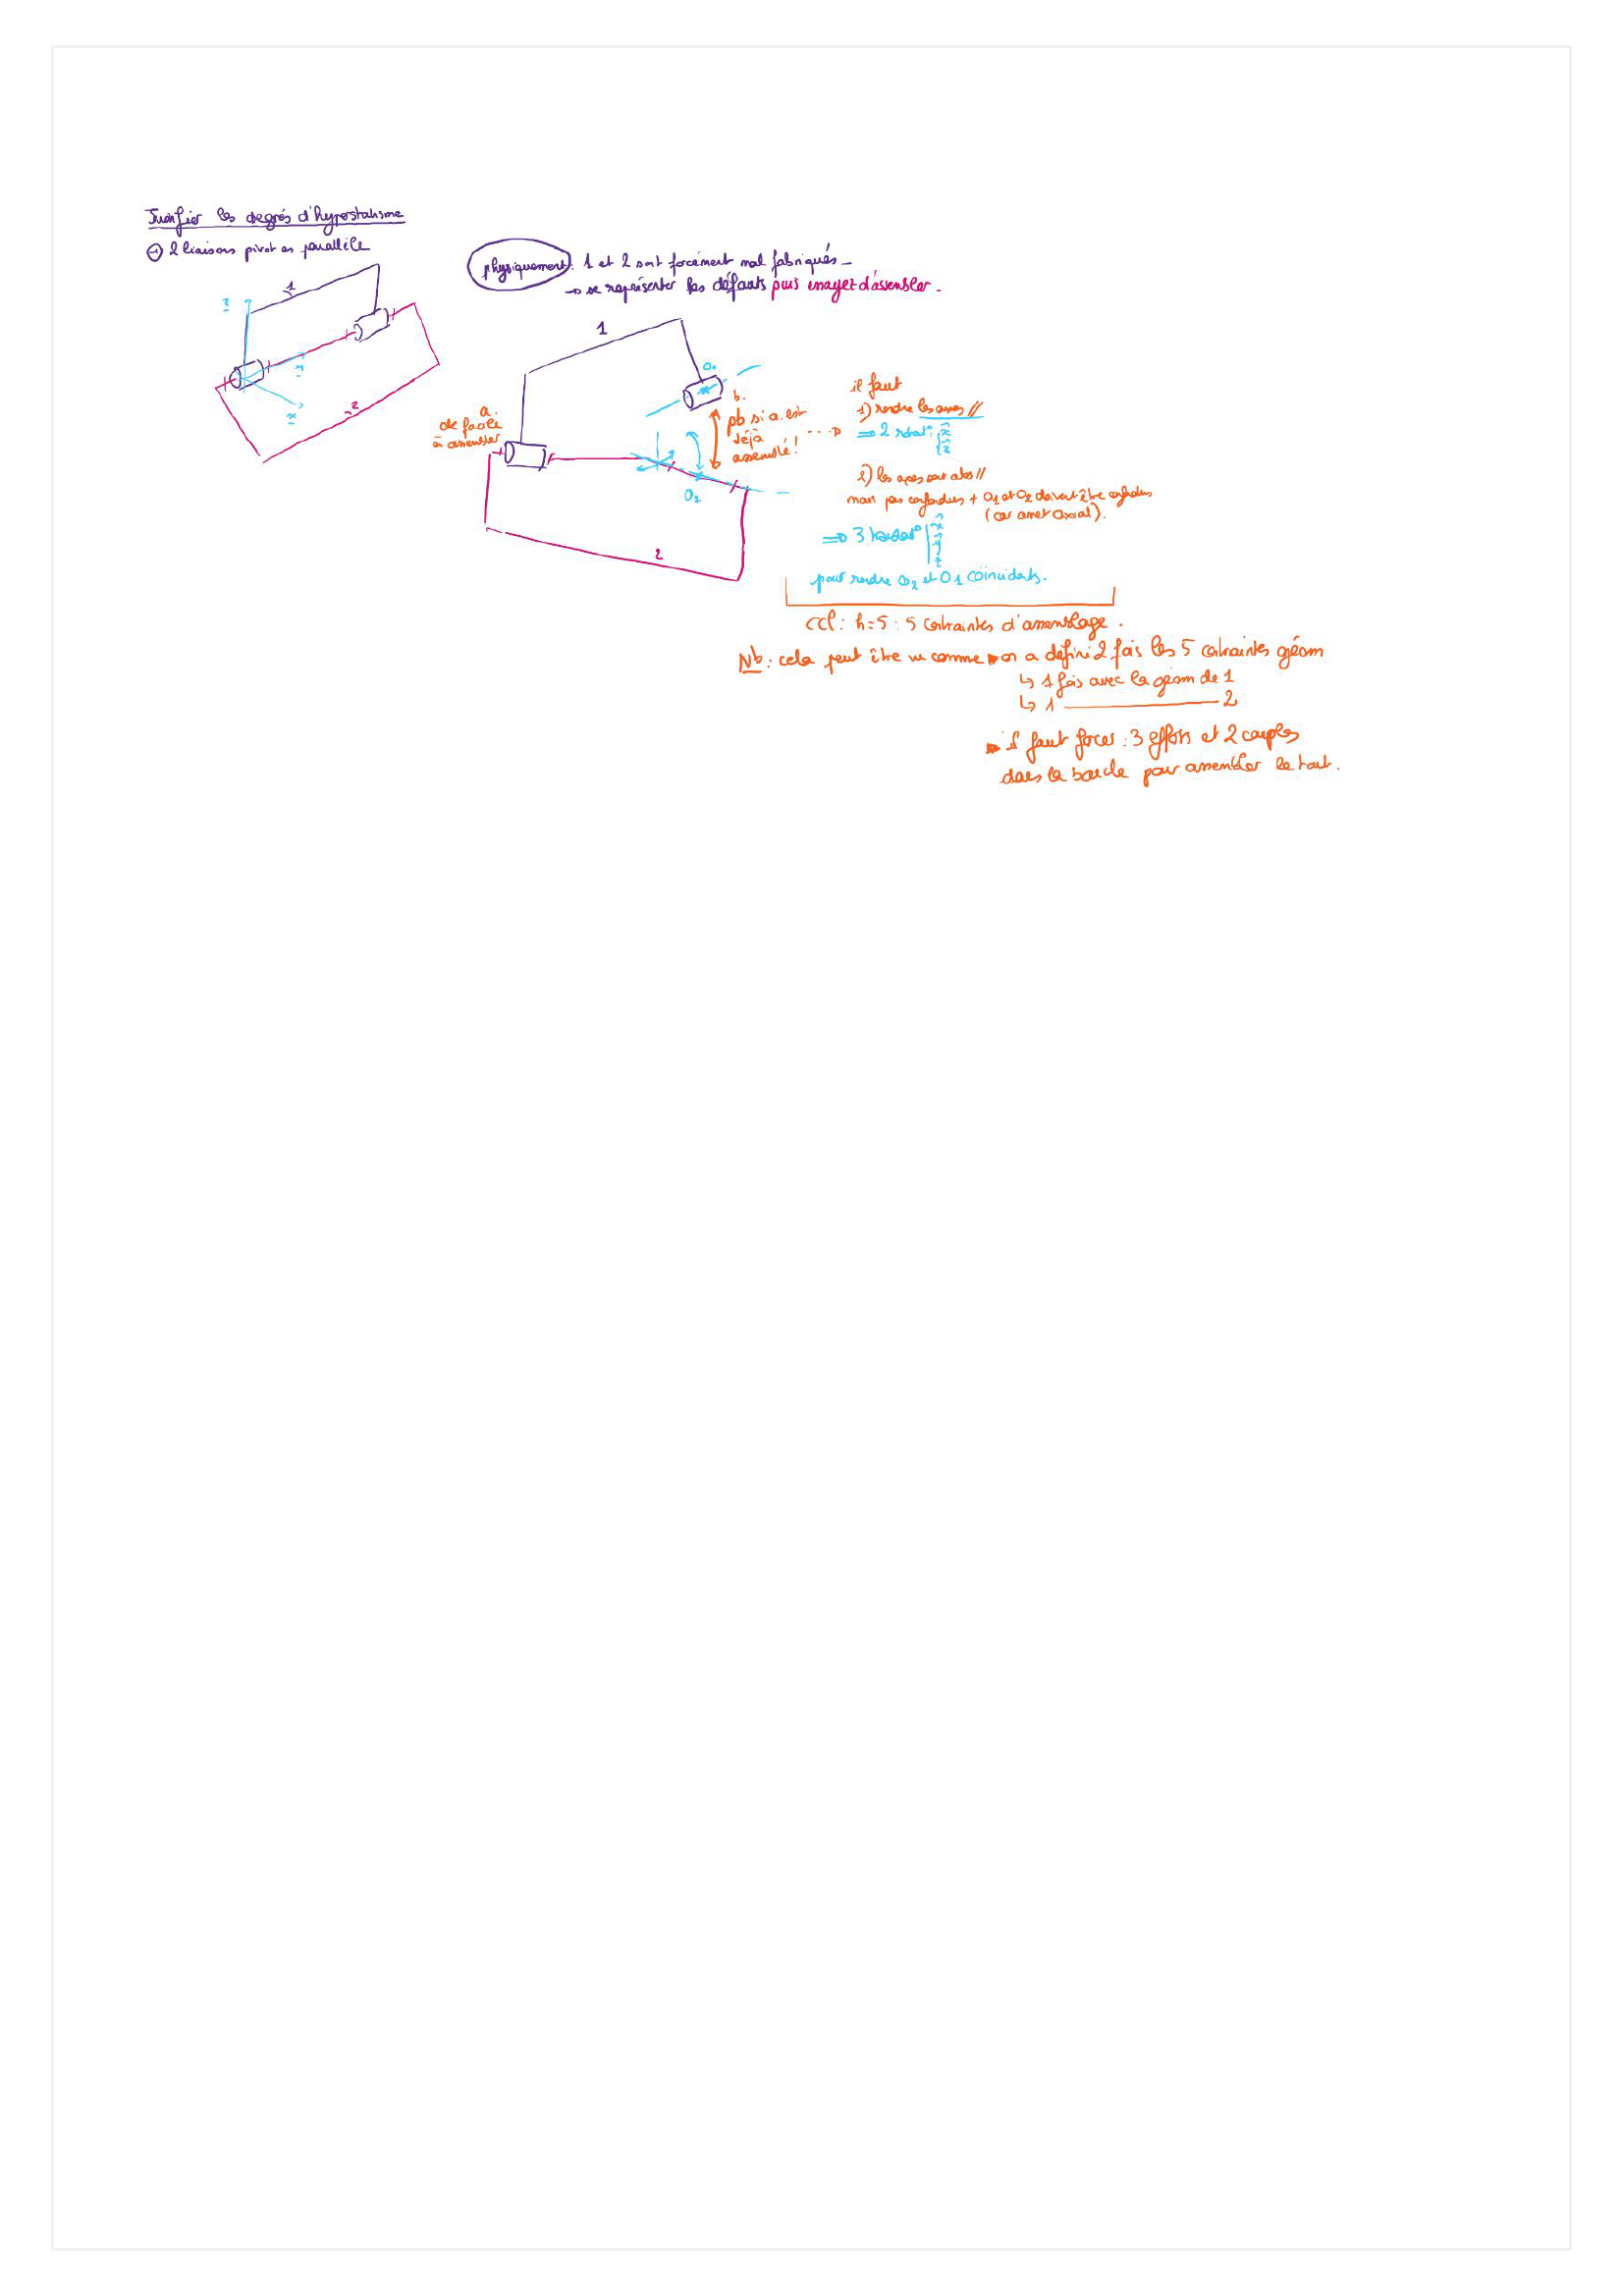 Justifier les degrés d'hyperstatisme
→ 2 liaisons pivot en parallèle
physiquement : 1 et 2 sont forcément mal fabriqués -
→ se représenter les défauts puis essayez d'assembler.
1
z
y
x
2
1
O1
a.
de facile
à assembler
b.
pb si a. est
déjà
assemblé !
O2
2
il faut
1) rendre les axes //
⇒ 2 rotat° x z
2) les axes sont alors //
mais pas confondus + O1 et O2 doivent être confondus
(car arrêt axial).
⇒ 3 translat° x y z
pour rendre O2 et O1 coïncidents.
ccl : h=5 : 5 contraintes d'assemblage.
Nb : cela peut être vu comme ▸ on a défini 2 fois les 5 contraintes géom
↳ 1 fois avec la géom de 1
↳ 1 ———— 2
▸ il faut forcer : 3 efforts et 2 couples
dans la boucle pour assembler le tout.